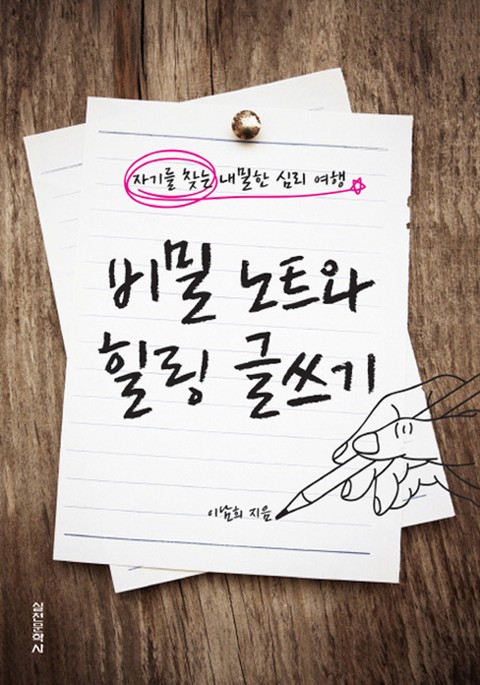 자기를 찾는 내밀한 심리 여행
비밀 노트와
힐링 글쓰기
이남희 지음
실천문학사